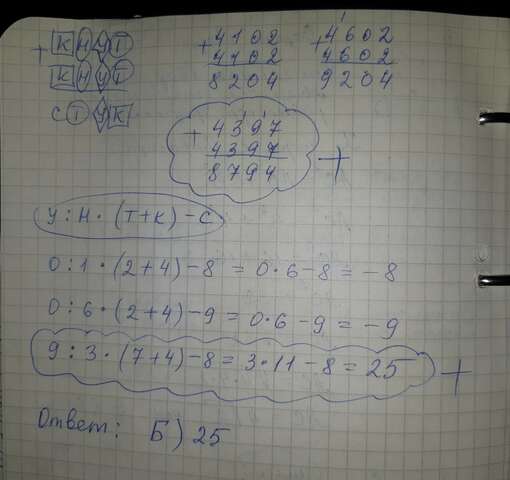 + К Н У Т
К Н У Т
С Т У К
+ 4102
4102
8204
+ 4602
4602
9204
+ 4397
4397
8794
+
У : Н · (Т+К) – С
0 : 1 · (2+4) – 8 = 0·6 – 8 = – 8
0 : 6 · (2+4) – 9 = 0·6 – 9 = – 9
9 : 3 · (7+4) – 8 = 3·11 – 8 = 25
+
Ответ: Б) 25